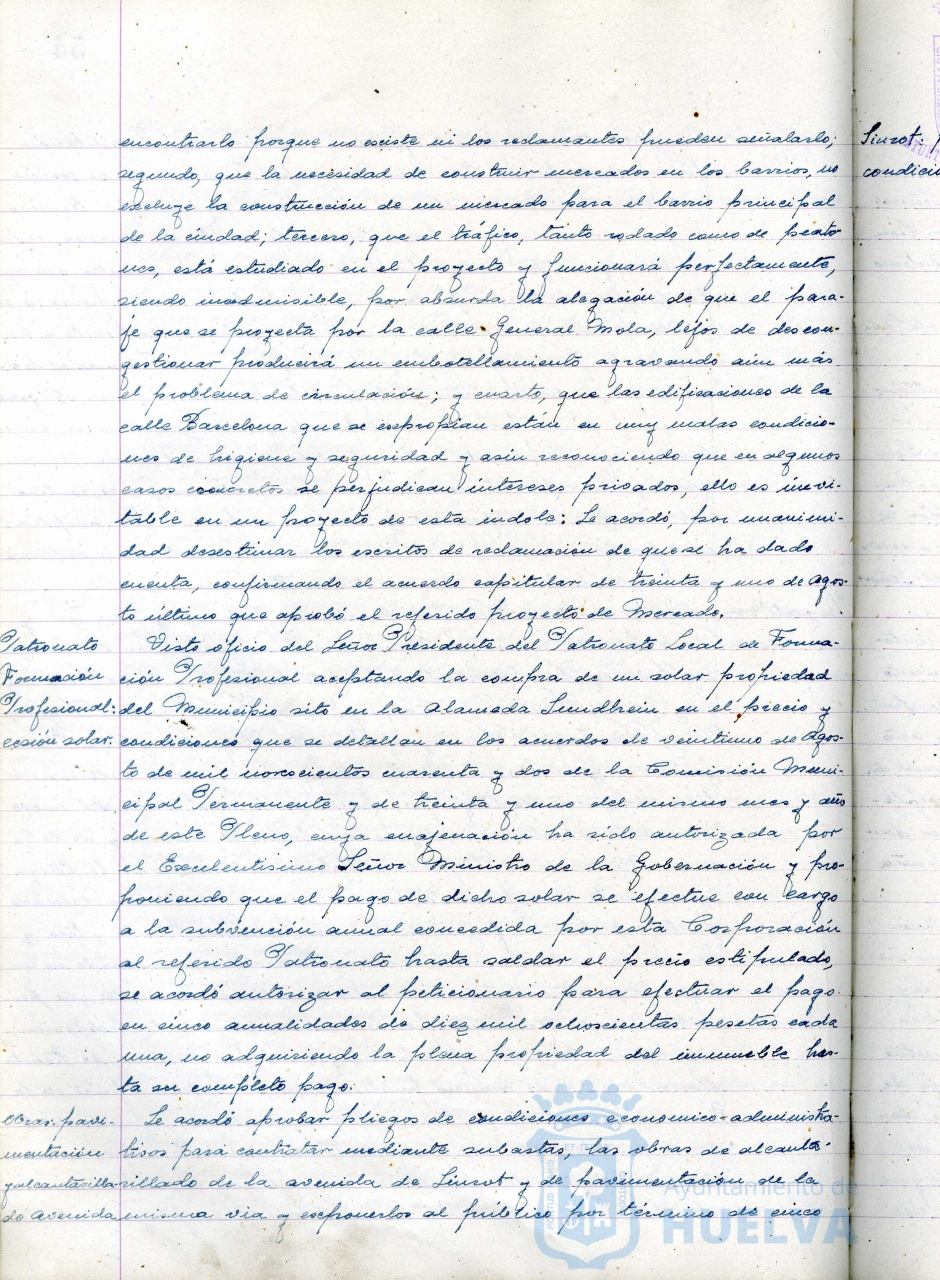 encontrarlo porque no existe ni los reclamantes pueden señalarlo;
segundo, que la necesidad de construir mercados en los barrios, no
excluye la construcción de un mercado para el barrio principal
de la ciudad; tercero, que el tráfico, tanto rodado como de peato-
nes, está estudiado en el proyecto y funcionará perfectamente,
siendo inadmisible, por absurda la alegación de que el para-
je que se proyecta por la calle General Mola, lejos de descon-
gestionar producirá un embotellamiento agravando aún más
el problema de circulación; y cuarto, que las edificaciones de la
calle Barcelona que se expropian están en muy malas condicio-
nes de higiene y seguridad y aún reconociendo que en algunos
casos concretos se perjudican intereses privados, ello es inevi-
table en un proyecto de esta índole: Se acordó, por unanimi-
dad desestimar los escritos de reclamación de que se ha dado
cuenta, confirmando el acuerdo capitular de treinta y uno de Agos-
to último que aprobó el referido proyecto de Mercado.
Patronato
Formación
Profesional:
cesión solar.
Visto oficio del Señor Presidente del Patronato Local de Forma-
ción Profesional aceptando la compra de un solar propiedad
del Municipio sito en la Alameda Sundhein en el precio y
condiciones que se detallan en los acuerdos de veintiuno de Agos-
to de mil novecientos cuarenta y dos de la Comisión Muni-
cipal Permanente y de treinta y uno del mismo mes y año
de este Pleno, cuya enajenación ha sido autorizada por
el Excelentísimo Señor Ministro de la Gobernación y pro-
poniendo que el pago de dicho solar se efectue con cargo
a la subvención anual concedida por esta Corporación
al referido Patronato hasta saldar el precio estipulado,
se acordó autorizar al peticionario para efectuar el pago
en cinco anualidades de diez mil ochocientas pesetas cada
una, no adquiriendo la plena propiedad del inmueble has-
ta su completo pago.
Obras: pavi-
mentación
y alcantarilla-
do Avenida
Se acordó aprobar pliegos de condiciones economico-administra-
tivos para contratar mediante subastas, las obras de alcanta-
rillado de la avenida de Sinrot y de pavimentación de la
misma via y exponerlos al público por término de cinco
Sinrot:
condicio
Ayuntamiento de
HUELVA